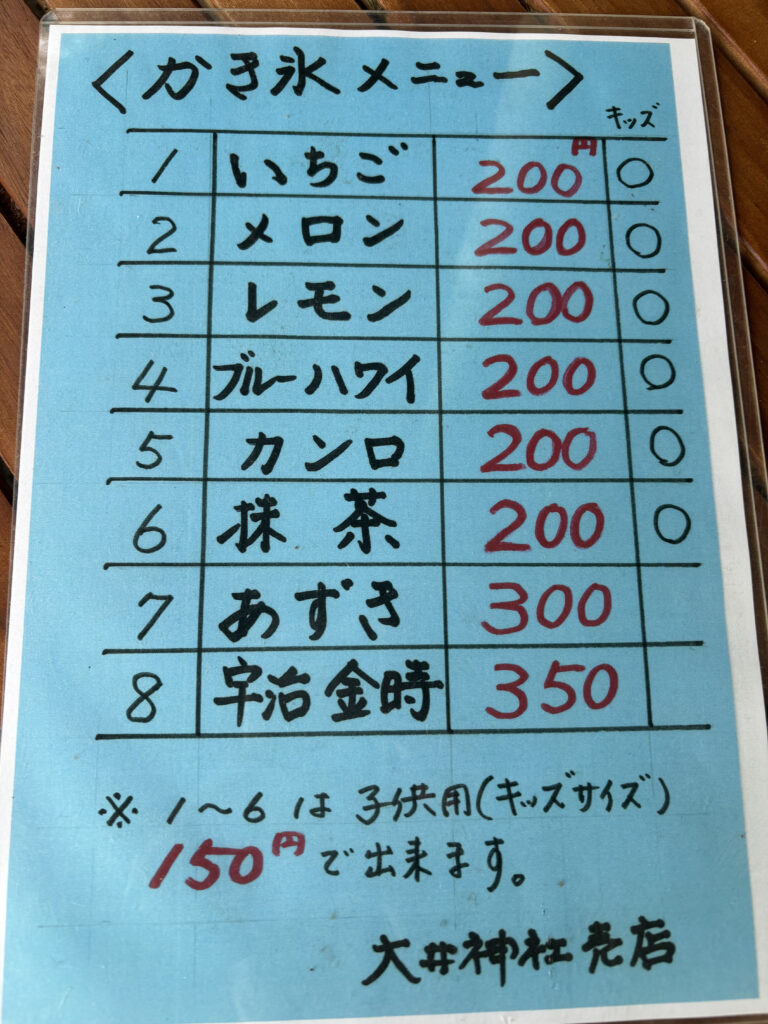 〈かき氷メニュー〉
キッズ
1 いちご 200円 ○
2 メロン 200 ○
3 レモン 200 ○
4 ブルーハワイ 200 ○
5 カンロ 200 ○
6 抹茶 200 ○
7 あずき 300
8 宇治金時 350
※ 1〜6は子供用(キッズサイズ)
150円で出来ます。
大井神社売店